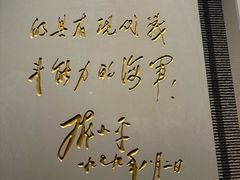 的具有现代战
斗能力的海军．
邓小平
一九七九年八月二日